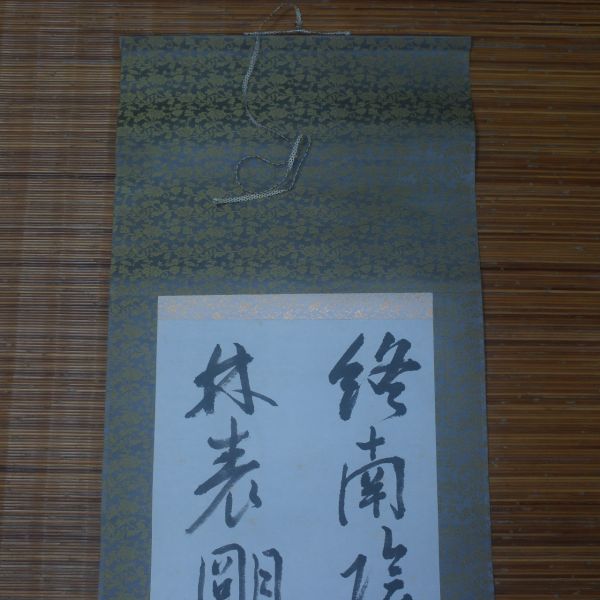 終南陰
林表朙